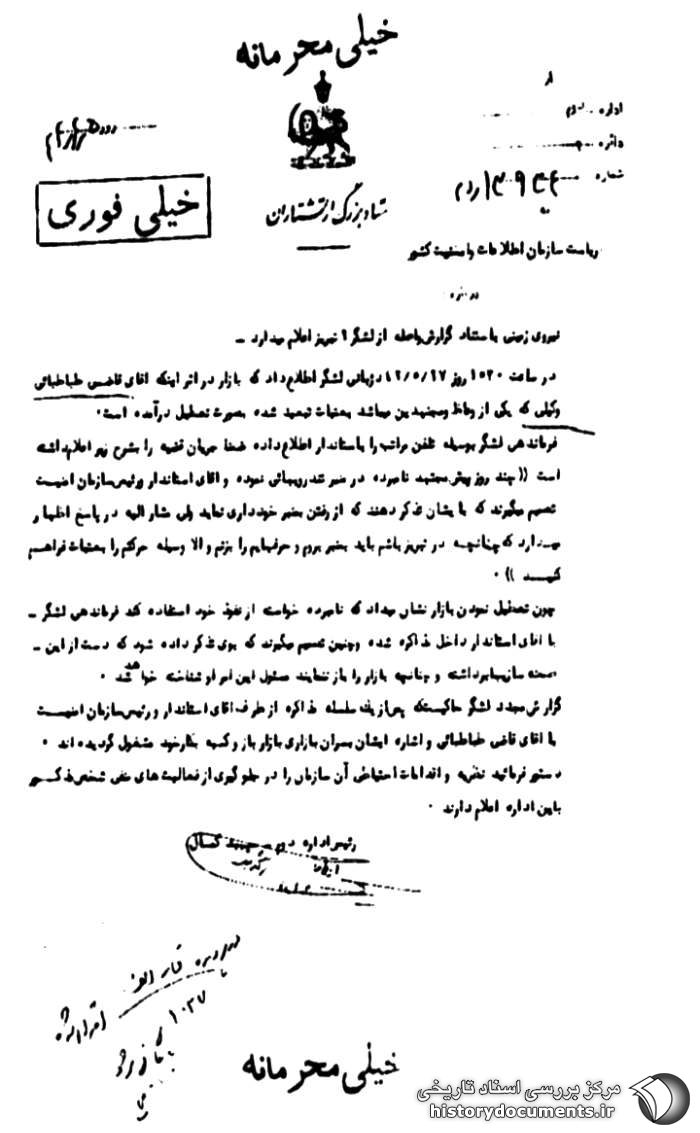 خیلی محرمانه
اداره
دائره
شماره
خیلی فوری
ستاد بزرگ ارتشتاران
ریاست سازمان اطلاعات و امنیت کشور
درباره
نیروی زمینی باستناد گزارش واصله از لشگر ۲ تبریز اعلام میدارد ـ
در ساعت ۱۵۳۰ روز ۴۲/۵/۲۷ دژبانی لشگر اطلاع داد که بازار در اثر اینکه آقای قاضی طباطبائی
وکیلی که یکی از وعاظ ومجتهدین میباشد بعتبات تبعید شده بصورت تعطیل درآمده است ۰
فرماندهی لشگر بوسیله تلفن مراتب را باستاندار اطلاع داده ضمنا جریان قضیه را بشرح زیر اعلام داشته
است (( چند روز پیش مجتهد نامبرده در منبر تندرویهائی نموده و آقای استاندار و رئیس سازمان امنیت
تصمیم میگیرند که بایشان تذکر دهند که از رفتن بمنبر خودداری نماید ولی مشارالیه در پاسخ اظهار
میدارد که چنانچه در تبریز باشم باید بمنبر بروم و حرفهایم را بزنم و الا وسیله حرکتم را بعتبات فراهم
کنید )) ۰
چون تعطیل نمودن بازار نشان میداد که نامبرده خواسته از نفوذ خود استفاده کند فرماندهی لشگر ـ
با آقای استاندار داخل مذاکره شده و چنین تصمیم میگیرند که بوی تذکر داده شود که دست از این ـ
صحنه سازیها برداشته و چنانچه بازار را باز ننمایند مسئول این امر او شناخته خواهد شد ۰
گزارش مجدد لشگر حاکیست که پس از یک سلسله مذاکره از طرف آقای استاندار و رئیس سازمان امنیت
با آقای قاضی طباطبائی و اشاره ایشان بسران بازاری بازار باز و کسبه بکار خود مشغول گردیده اند ۰
دستور فرمائید نظریه و اقدامات احتیاطی آن سازمان را در جلوگیری از فعالیت های منفی شخص مذکور
باین اداره اعلام دارند ۰
رئیس اداره دوم سپهبد کمال
خیلی محرمانه
مرکز بررسی اسناد تاریخی
historydocuments.ir